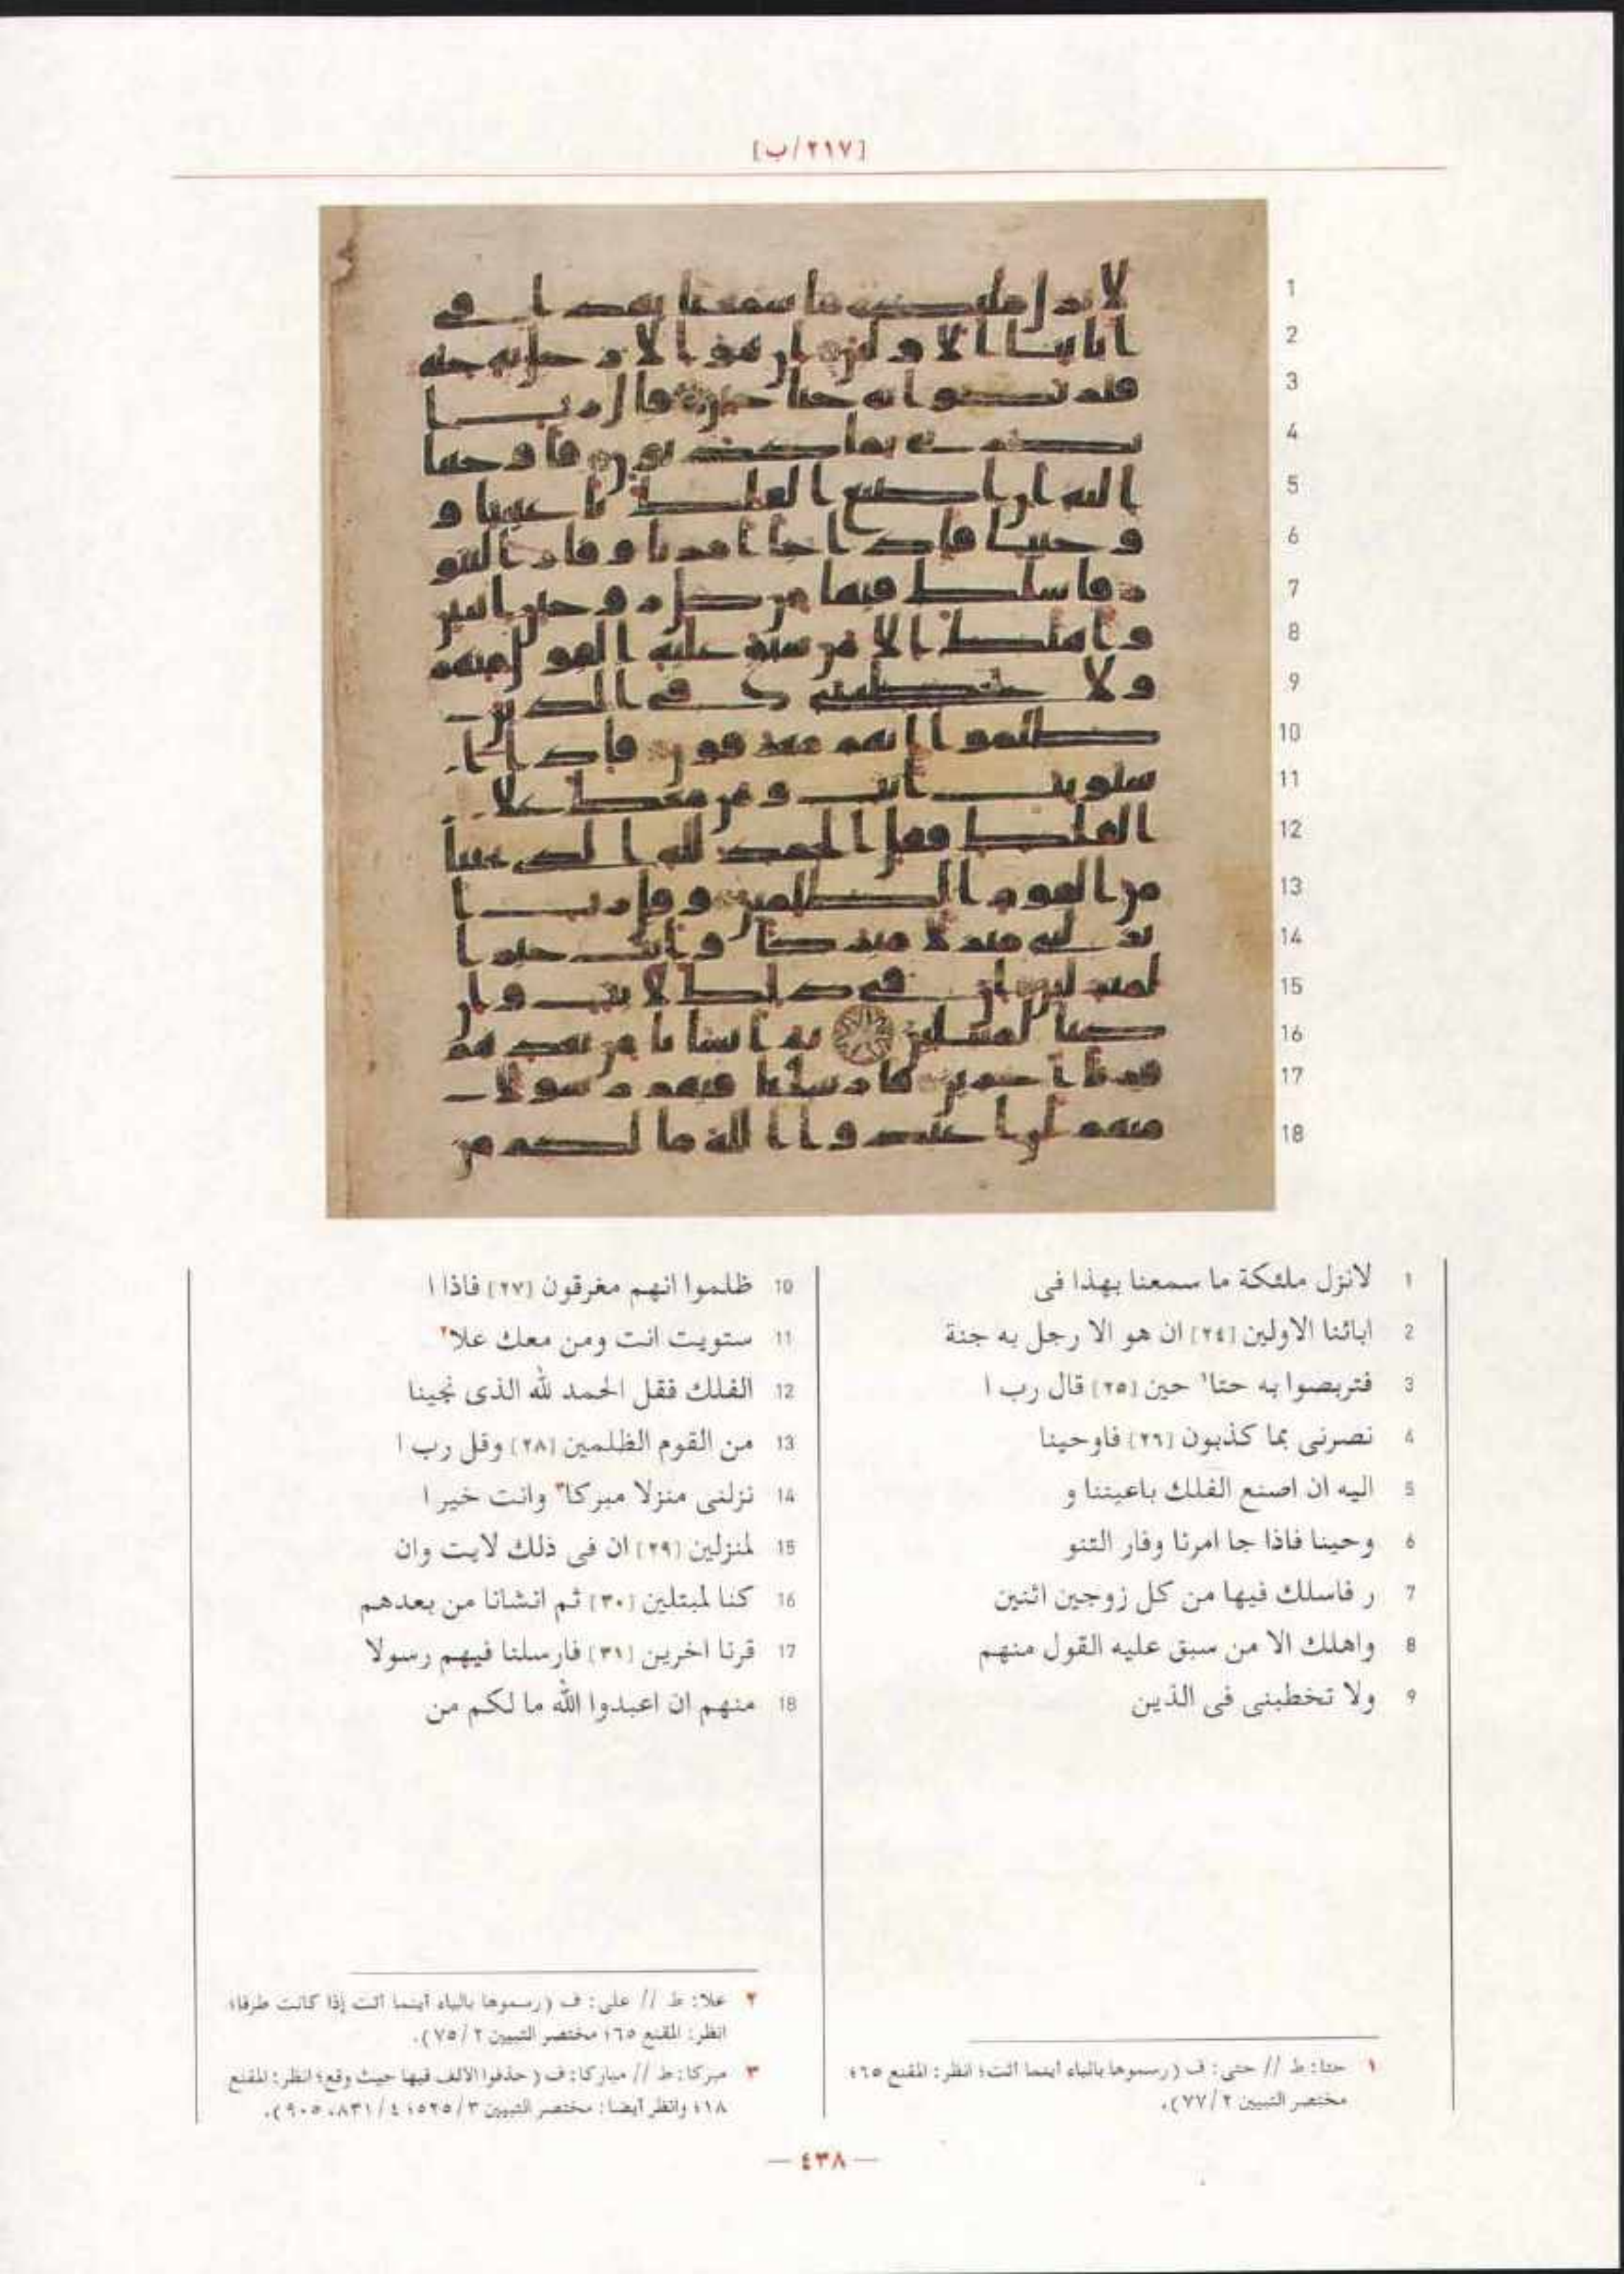 [٢١٧/ب]
1 لانزل ملئكة ما سمعنا بهذا فى
2 ابائنا الاولين [٢٤] ان هو الا رجل به جنة
3 فتربصوا به حتا¹ حين [٢٥] قال رب ا
4 نصرنى بما كذبون [٢٦] فاوحينا
5 اليه ان اصنع الفلك باعيننا و
6 وحينا فاذا جا امرنا وفار التنو
7 ر فاسلك فيها من كل زوجين اثنين
8 واهلك الا من سبق عليه القول منهم
9 ولا تخطبنى فى الذين
10 ظلموا انهم مغرقون [٢٧] فاذا ا
11 ستويت انت ومن معك علا²
12 الفلك فقل الحمد لله الذى نجينا
13 من القوم الظلمين [٢٨] وقل رب ا
14 نزلنى منزلا مبركا³ وانت خير ا
15 لمنزلين [٢٩] ان فى ذلك لايت وان
16 كنا لمبتلين [٣٠] ثم انشانا من بعدهم
17 قرنا اخرين [٣١] فارسلنا فيهم رسولا
18 منهم ان اعبدوا الله ما لكم من
١ حتا: ط // حتى: ف (رسموها بالياء أينما أتت؛ انظر: المقنع ٦٥؛
مختصر التبيين ٢/ ٧٧).
٢ علا: ط // على: ف (رسموها بالياء أينما أتت إذا كانت ظرفا؛
انظر: المقنع ٦٥؛ مختصر التبيين ٢/ ٧٥).
٣ مبركا: ط // مباركا: ف (حذفوا الألف فيها حيث وقع؛ انظر: المقنع
١٨؛ وانظر أيضا: مختصر التبيين ٣/ ٥٢٥؛ ٤/ ٨٣١، ٩٠٥).
— ٤٣٨ —